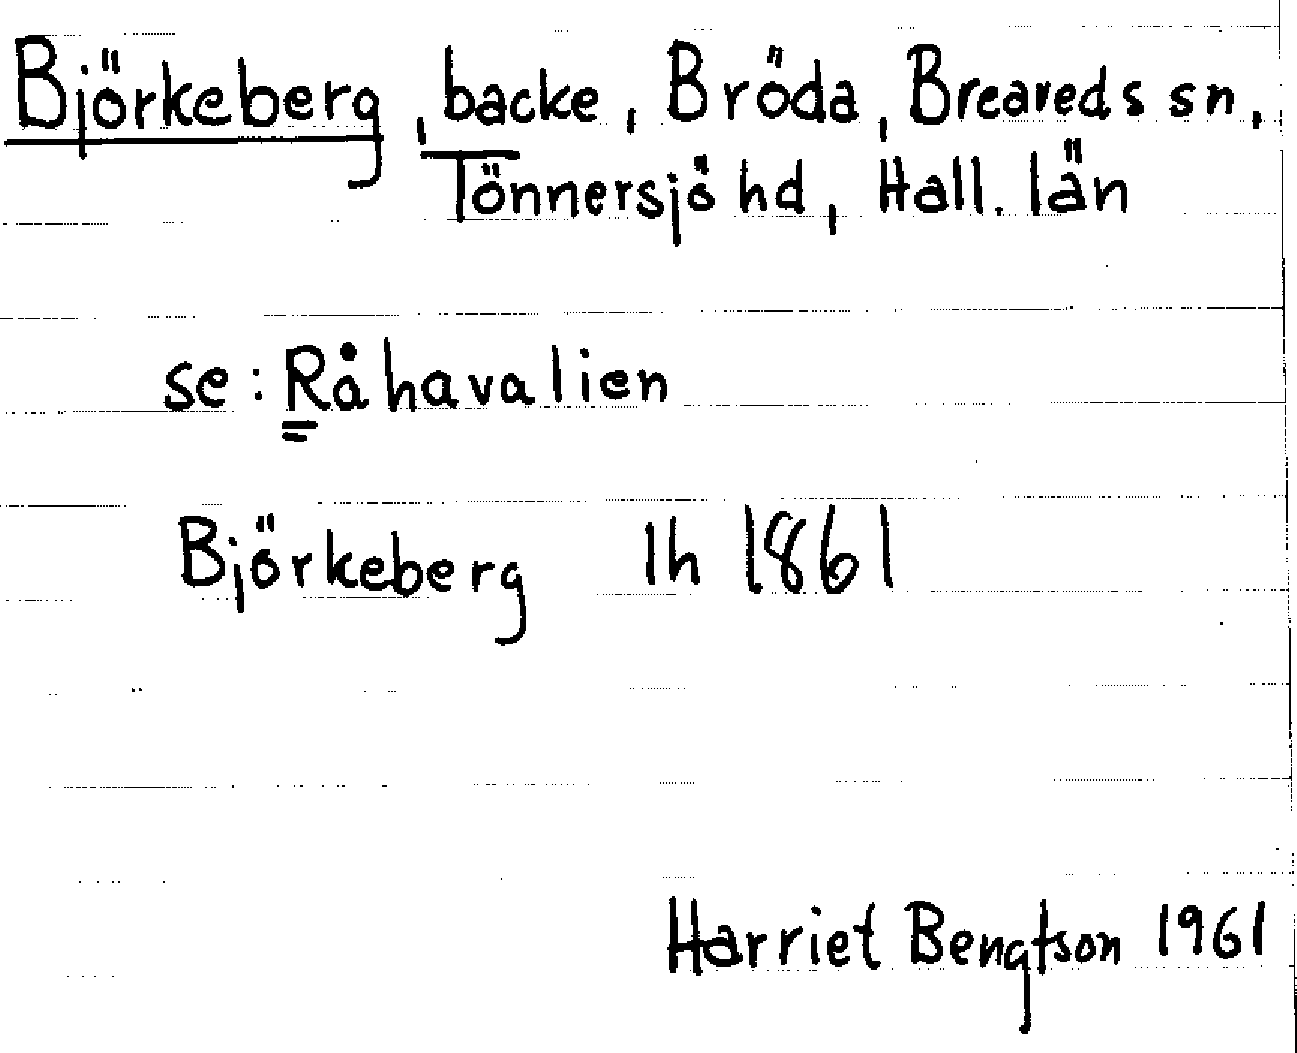 Björkeberg, backe, Bröda, Breareds sn,
Tönnersjö hd, Hall. län
se: Råhavalien
Björkeberg lh 1861
Harriet Bengtson 1961